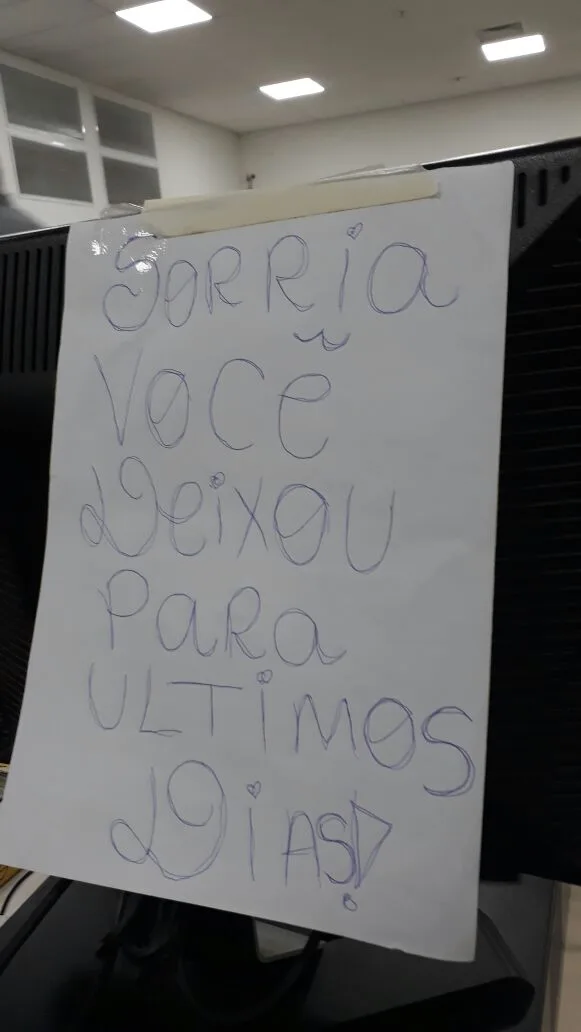 SORRia
VOCẼ
DeiXOU
PaRa
ULTiMOS
DiAS!